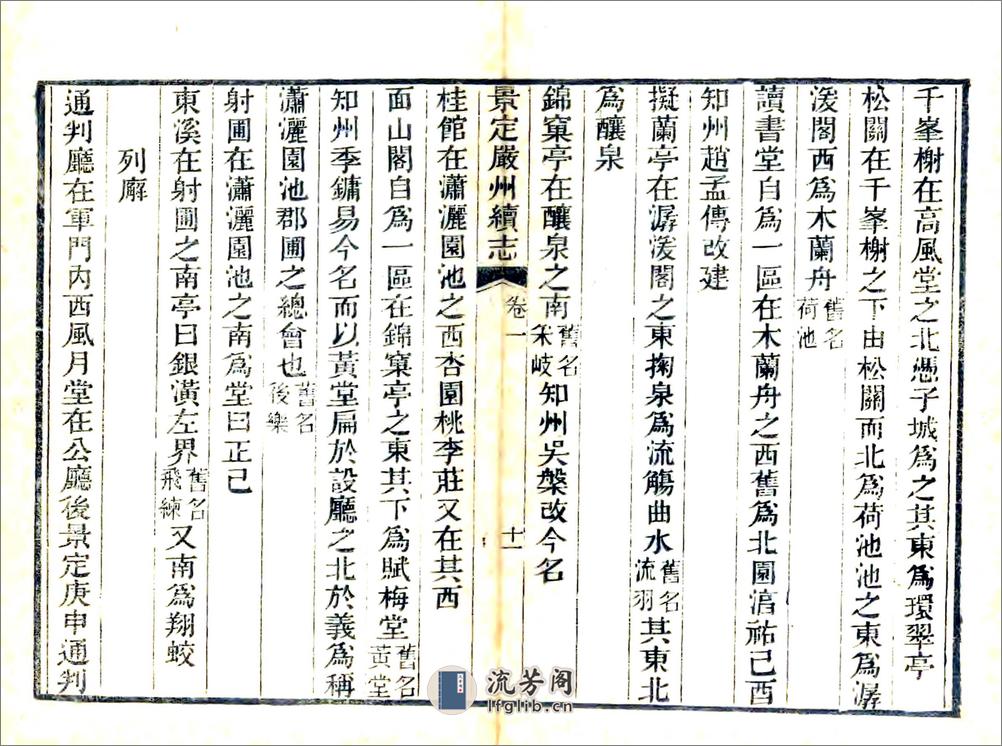 千峯榭在高風堂之北憑子城爲之其東爲環翠亭
松關在千峯榭之下由松關而北爲荷池池之東爲潺
湲閣西爲木蘭舟舊名荷池
讀書堂自爲一區在木蘭舟之西舊爲北園湻祐己酉
知州趙孟傳改建
擬蘭亭在潺湲閣之東掬泉爲流觴曲水舊名流羽其東北
爲釀泉
錦窠亭在釀泉之南舊名岐知州吳槃改今名
景定嚴州續志 卷一 十一
桂館在瀟灑園池之西杏園桃李莊又在其西
面山閣自爲一區在錦窠亭之東其下爲賦梅堂舊名黃堂
知州季鏞易今名而以黃堂扁於設廳之北於義爲稱
瀟灑園池郡圃之總會也舊名後樂
射圃在瀟灑園池之南爲堂曰正己
東溪在射圃之南亭曰銀潢左界舊名飛練又南爲翔蛟
列廨
通判廳在軍門內西風月堂在公廳後景定庚申通判
流芳阁
lfglib.cn